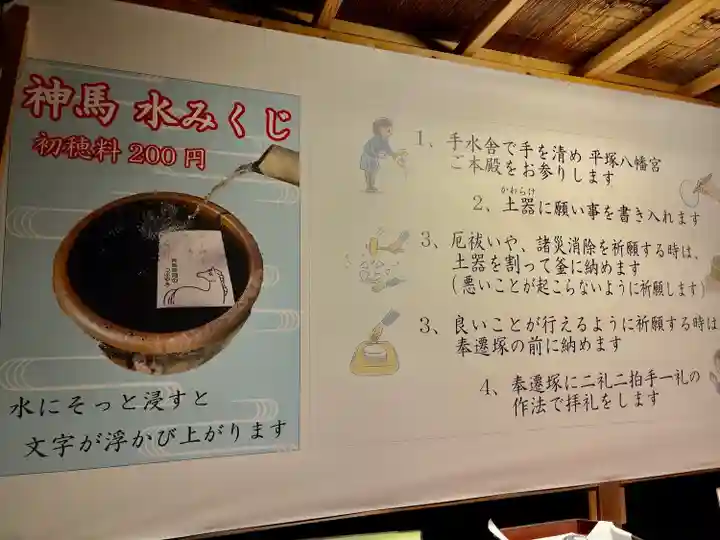 神馬 水みくじ
初穂料 200 円
水にそっと浸すと
文字が浮かび上がります
1、手水舎で手を清め 平塚八幡宮
ご本殿をお参りします
かわらけ
2、土器に願い事を書き入れます
3、厄祓いや、諸災消除を祈願する時は、
土器を割って釜に納めます
（悪いことが起こらないように祈願します）
3、良いことが行えるように祈願する時は
奉遷塚の前に納めます
4、奉遷塚に二礼二拍手一礼の
作法で拝礼をします